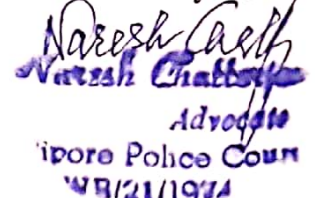 Naresh Chatt
Naresh Chatterjee
Advocate
ipore Police Court
WB/21/1974